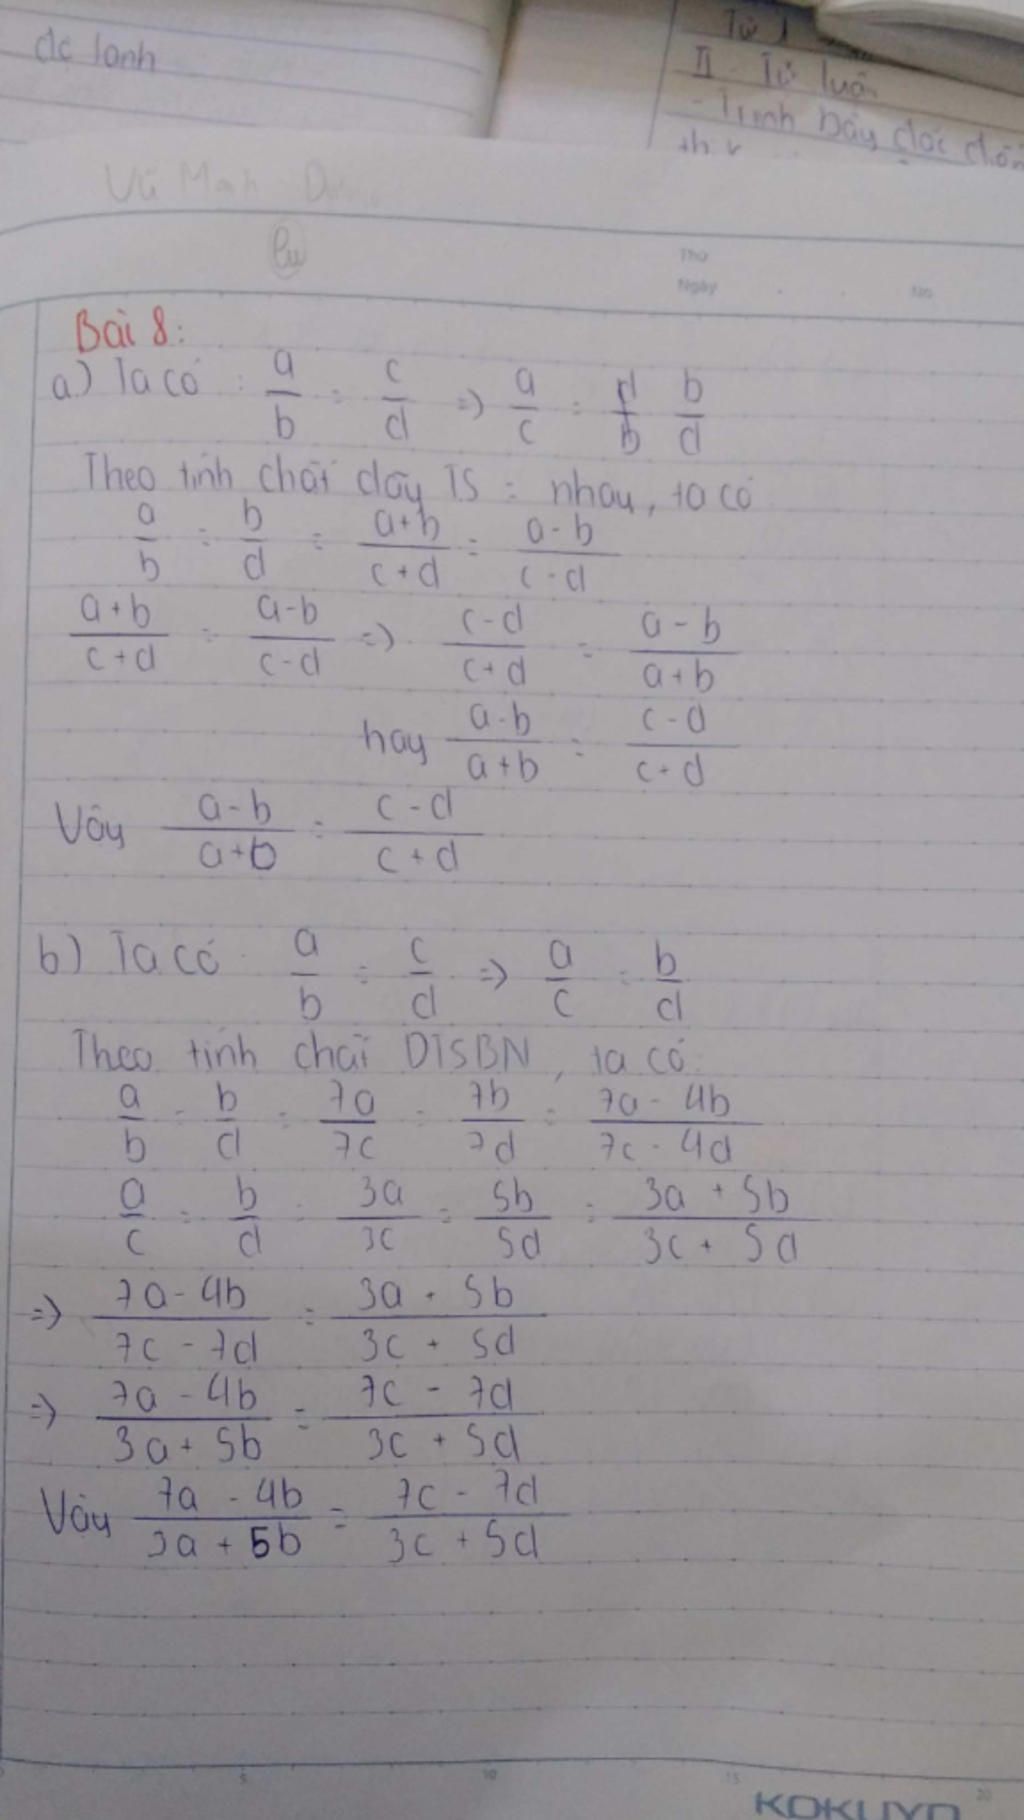 dc lanh
II - Tự luận
- Trình bày đặc
Vũ Manh
Thứ
Ngày . . No
Bài 8:
a) Ta có : a/b = c/d => a/c = d/b b/d
Theo tính chất dãy TS = nhau, ta có
a/b = b/d = a+b/c+d = a-b/c-d
a+b/c+d = a-b/c-d => c-d/c+d = a-b/a+b
hay a-b/a+b = c-d/c+d
Vậy a-b/a+b = c-d/c+d
b) Ta có a/b = c/d => a/c = b/d
Theo tính chất DTSBN, ta có:
a/b = b/d = 7a/7c = 7b/7d = 7a-4b/7c-4d
a/c = b/d = 3a/3c = 5b/5d = 3a+5b/3c+5d
=> 7a-4b/7c-7d = 3a+5b/3c+5d
=> 7a-4b/3a+5b = 7c-7d/3c+5d
Vậy 7a-4b/3a+5b = 7c-7d/3c+5d
5 10 15 20
KOKUYO